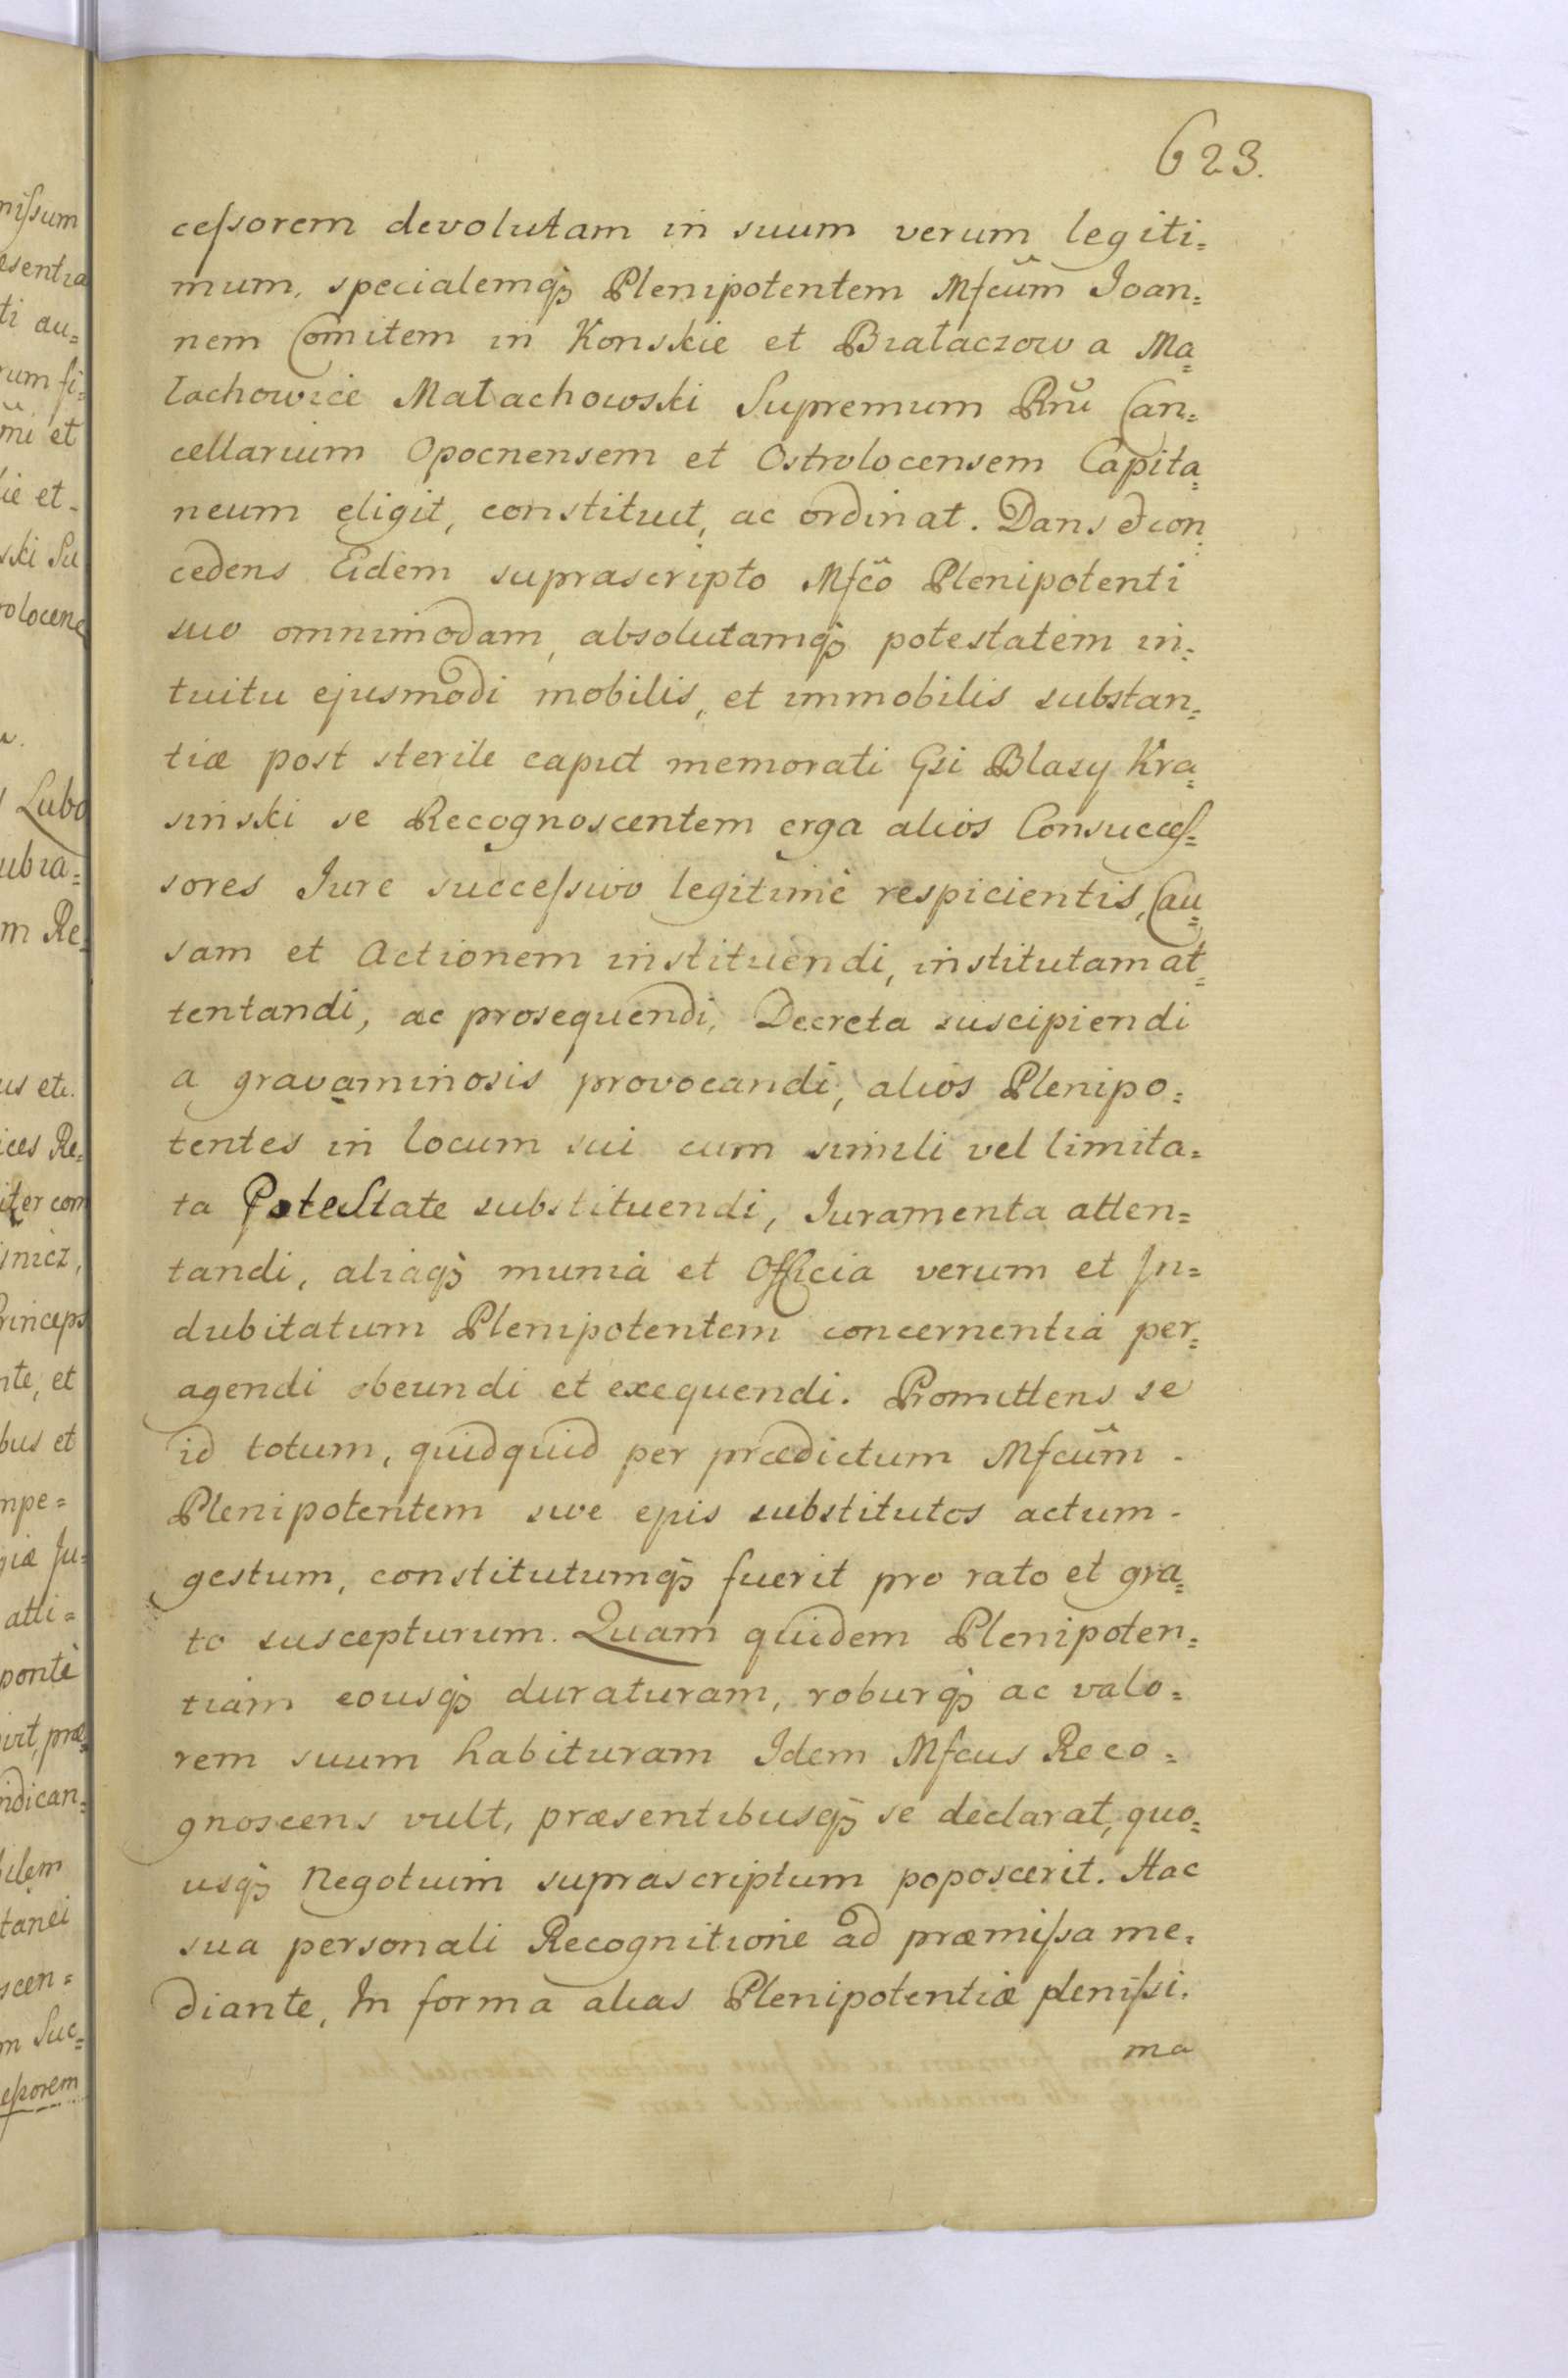 623.
ceſsorem devolutam in suum verum legiti=
mum, specialemq3 Plenipotentem Mfcum̃ Joan=
nem Comitem in Konskie et Białaczow a Ma=
łachowice Małachowski Supremum Rñi Can=
cellarium Opocnensem et Ostrolocensem Capita=
neum eligit, constituit, ac ordinat. Dans et con=
cedens Eidem suprascripto Mfcõ Plenipotenti
suo omnimodam, absolutamq3 potestatem in=
tuitu ejusmodi mobilis, et immobilis substan=
tiæ post sterile caput memorati Gsi Blasÿ Kra=
sinski se Recognoscentem erga alios Consucceſ=
sores Jure succeſsivo legitimè respicientis, Cau=
sam et Actionem instituendi, institutam at=
tentandi, ac prosequendi, Decreta suscipiendi
a gravaminosis provocandi, alios Plenipo=
tentes in locum sui cum simili vel limita=
ta Potestate substituendi, Juramenta atten=
tandi, aliaq3 munia et Officia verum et In=
dubitatum Plenipotentem concernentia per=
agendi obeundi et exequendi. Promittens se
id totum, quidquid per prædictum Mfcum̃
Plenipotentem sive ejus substitutos actum
gestum, constitutumq3 fuerit pro rato et gra=
to suscepturum. Quam quidem Plenipoten=
tiam eousq3 duraturam, roburq3 ac valo=
rem suum habituram Idem Mfcus Reco=
gnoscens vult, præsentibusq3 se declarat, quo=
usq3 Negotium suprascriptum poposcerit. Hac
sua personali Recognitione ad præmiſsa me=
diante, In forma alias Plenipotentiæ pleniſsi=
ma